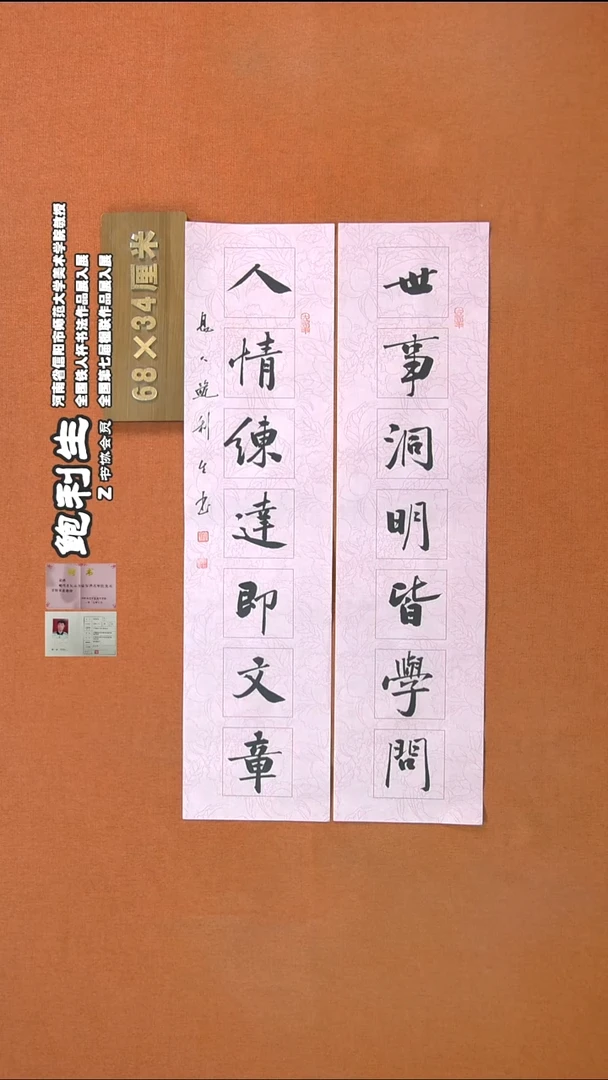 世事洞明皆學問
人情練達即文章
鮑利生书
68×34厘米
河南省信阳市师范大学美术学院教授
全国铁人杯书法作品展入展
全国第七届楹联作品展入展
鲍利生
Z书协会员